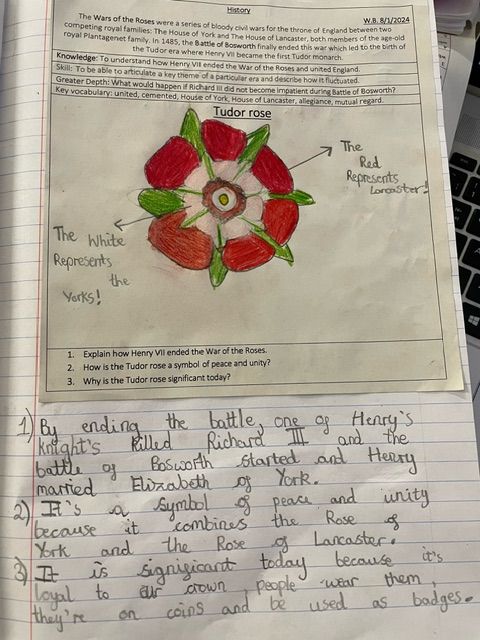 History
W.B. 8/1/2024
The Wars of the Roses were a series of bloody civil wars for the throne of England between two
competing royal families: The House of York and The House of Lancaster, both members of the age-old
royal Plantagenet family. In 1485, the Battle of Bosworth finally ended this war which led to the birth of
the Tudor era where Henry VII became the first Tudor monarch.
Knowledge: To understand how Henry VII ended the War of the Roses and united England.
Skill: To be able to articulate a key theme of a particular era and describe how it fluctuated.
Greater Depth: What would happen if Richard III did not become impatient during Battle of Bosworth?
Key vocabulary: united, cemented, House of York, House of Lancaster, allegiance, mutual regard.
Tudor rose
The
Red
Represents
Lancaster!
The White
Represents
the
Yorks!
1. Explain how Henry VII ended the War of the Roses.
2. How is the Tudor rose a symbol of peace and unity?
3. Why is the Tudor rose significant today?
1) By ending the battle, one of Henry's
Knight's killed Richard III and the
battle of Bosworth started and Henry
married Elizabeth of York.
2) It's a symbol of peace and unity
because it combines the Rose of
York and the Rose of Lancaster.
3) It is significant today because it's
loyal to our crown, people wear them,
they're on coins and be used as badges.